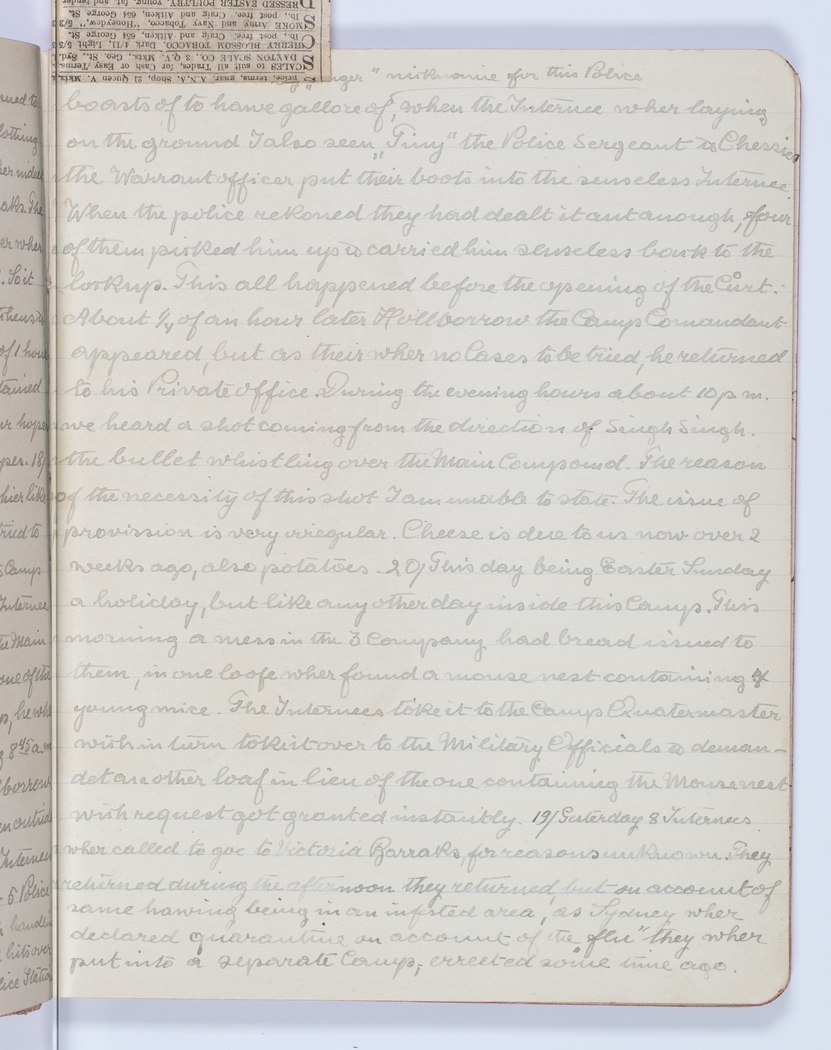 price, terms, guar. A.N.A. Shop, 21 Queen V. Mkts.
SCALES to suit all Trades, for Cash or Easy Terms.
DAYTON SCALE CO., 3 Q.V. Mkts., Geo. St., Syd.
CHERRY BLOSSOM TOBACCO, Dark 4/11, Light 5/3
lb., post free. Craig and Aitken, 654 George St.
SMOKE Army and Navy Tobacco, "Honeydew," 5/3
lb., post free. Craig and Aitken, 654 George St.
DRESSED EASTER POULTRY, young, fat, and tender
" nickname for this Police
boasts of to hawe gallore of, when the Internee wher laying
on the ground I also seen "Tiny" the Police Sergeant & Chessie
the Warrant officer put their boots into the senseless Internee.
When the police rekoned they had dealt it aut anough, four
of them picked him up & carried him senseless back to the
lockup. This all happened before the opening of the Court.
About ¼ of an hour later Hollborrow the Camp Comandant
appeared, but as their wher no Cases to be tried, he returned
to his Private office. During the evening hours about 10 p.m.
we heard a shot coming from the direction of Singh Singh.
the bullet whistling over the Main Compound. The reason
of the necessity of this shot I am unable to state. The issue of
provission is very irregular. Cheese is due to us now over 2
weeks ago, also potatoes. 20/ This day being Easter Sunday
a holiday, but like any other day inside this Camp. This
morning a mess in the 3 Company had bread issued to
them, in one loafe wher found a mouse nest containing 4
young mice. The Internees tokeit to the Camp Quatermaster
wish in turn tokeit over to the Military Officials & deman-
det another loaf in lieu of the one containing the Mousenest
wish request got granted instantly. 19/ Yesterday 8 Internees
wher called to goe to Victoria Barraks, for reasons unknown. They
returned during the afternoon they returned, but on account of
same hawing being in an infested area, as Sydney wher
declared quarantine on account of the "flu" they wher
put into a separate Camp, errected some time ago.